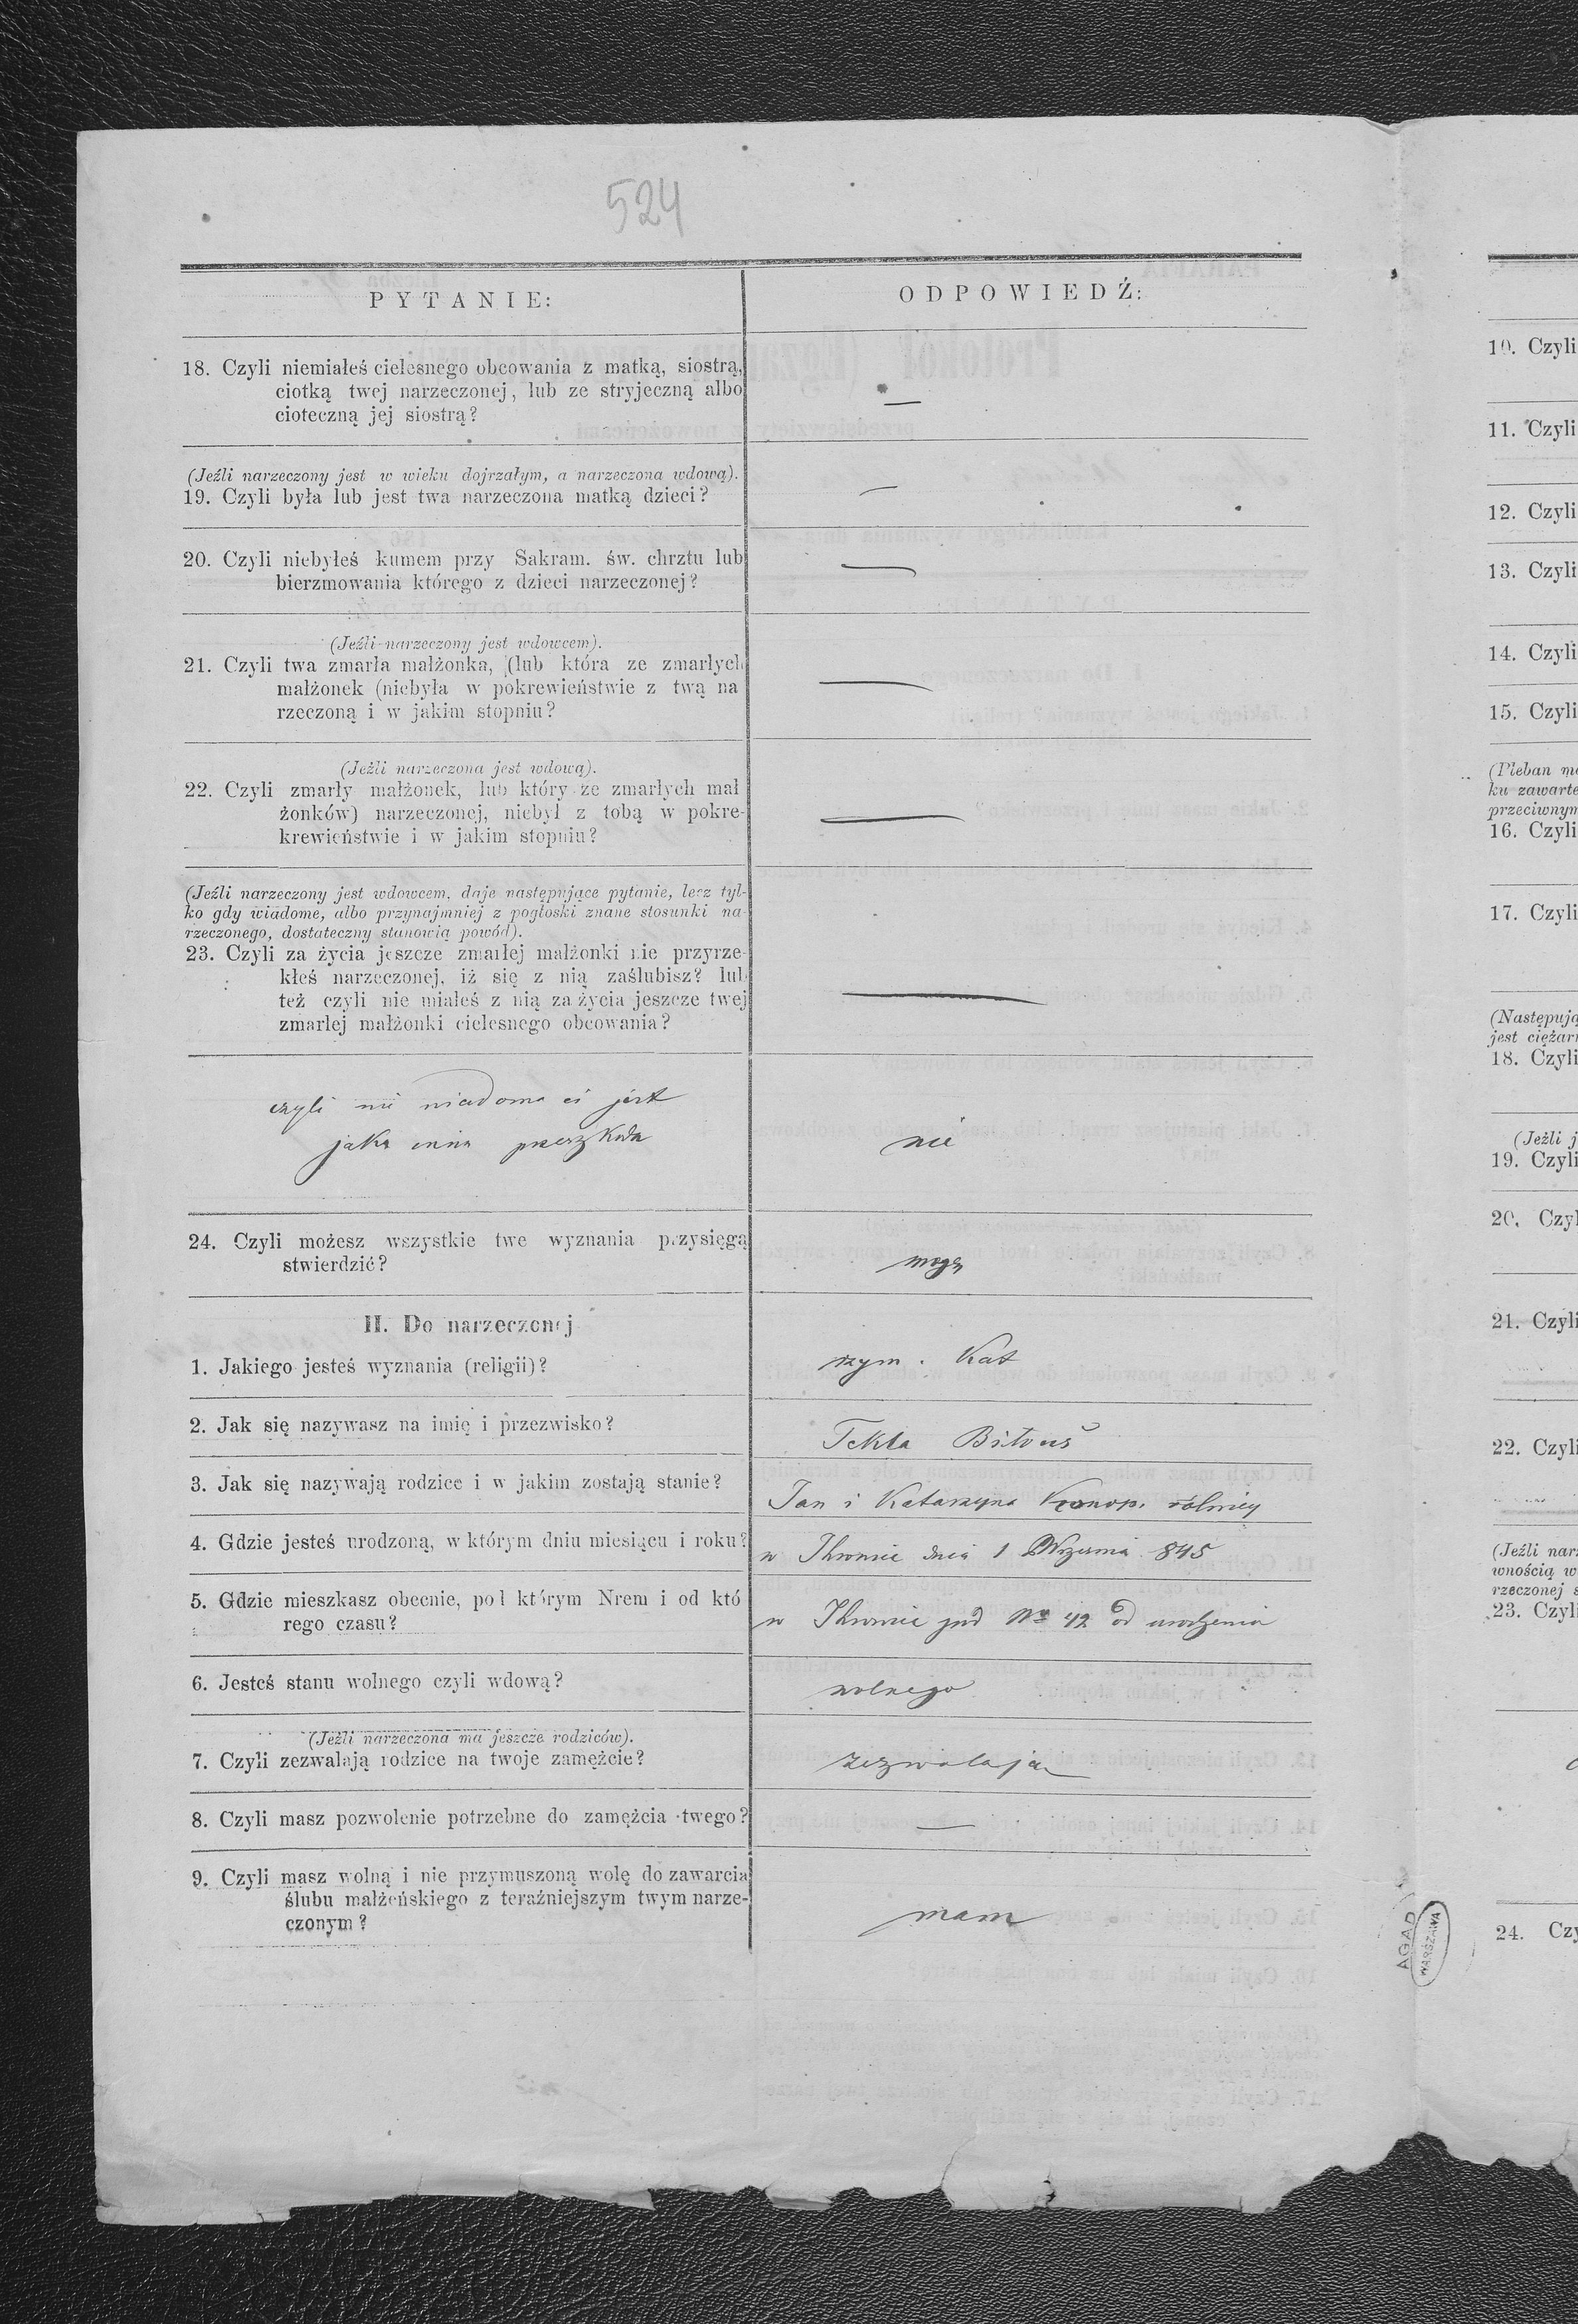 524
PYTANIE:
ODPOWIEDŹ:
18. Czyli niemiałeś cielesnego obcowania z matką, siostrą,
ciotką twej narzeczonej, lub ze stryjeczną albo
cioteczną jej siostrą?
—
(Jeźli narzeczony jest w wieku dojrzałym, a narzeczona wdową).
19. Czyli była lub jest twa narzeczona matką dzieci?
—
20. Czyli niebyłeś kumem przy Sakram. św. chrztu lub
bierzmowania którego z dzieci narzeczonej?
—
(Jeźli narzeczony jest wdowcem).
21. Czyli twa zmarła małżonka, (lub która ze zmarłych
małżonek (niebyła w pokrewieństwie z twą na
rzeczoną i w jakim stopniu?
—
(Jeźli narzeczona jest wdową).
22. Czyli zmarły małżonek, lub który ze zmarłych mał
żonków) narzeczonej, niebył z tobą w pokre-
krewieństwie i w jakim stopniu?
—
(Jeźli narzeczony jest wdowcem, daje następujące pytanie, lecz tyl-
ko gdy wiadome, albo przynajmniej z pogłoski znane stosunki na-
rzeczonego, dostateczny stanowią powód).
23. Czyli za życia jeszcze zmarłej małżonki nie przyrze-
kłeś narzeczonej, iż się z nią zaślubisz? lub
też czyli nie miałeś z nią za życia jeszcze twej
zmarłej małżonki cielesnego obcowania?
—
czyli nie wiadoma ci jest
jaka inna przeszkoda
nie
24. Czyli możesz wszystkie twe wyznania przysięgą
stwierdzić?
mogę
II. Do narzeczonej
1. Jakiego jesteś wyznania (religii)?
rzym. Kat
2. Jak się nazywasz na imię i przezwisko?
Tekla
3. Jak się nazywają rodzice i w jakim zostają stanie?
Jan i Katarzyna rólnicy
4. Gdzie jesteś urodzoną, w którym dniu miesiącu i roku?
w dnia 1 Września 845
5. Gdzie mieszkasz obecnie, pod którym Nrem i od któ
rego czasu?
w pod No 42 od urodzenia
6. Jesteś stanu wolnego czyli wdową?
wolnego
(Jeźli narzeczona ma jeszcze rodziców).
7. Czyli zezwalają rodzice na twoje zamężcie?
zezwalają
8. Czyli masz pozwolenie potrzebne do zamężcia twego?
—
9. Czyli masz wolną i nie przymuszoną wolę do zawarcia
ślubu małżeńskiego z teraźniejszym twym narze-
czonym?
mam
AGAD
WARSZAWA
10. Czyli
11. Czyli
12. Czyli
13. Czyli
14. Czyli
15. Czyli
(Pleban
ku zawarte
przeciwnym
16. Czyli
17. Czyli
(Następują
jest ciężar
18. Czyli
(Jeźli j
19. Czyli
20. Czyl
21. Czyli
22. Czyli
(Jeźli nar
wnością w
rzeczonej s
23. Czyli
24. Czy